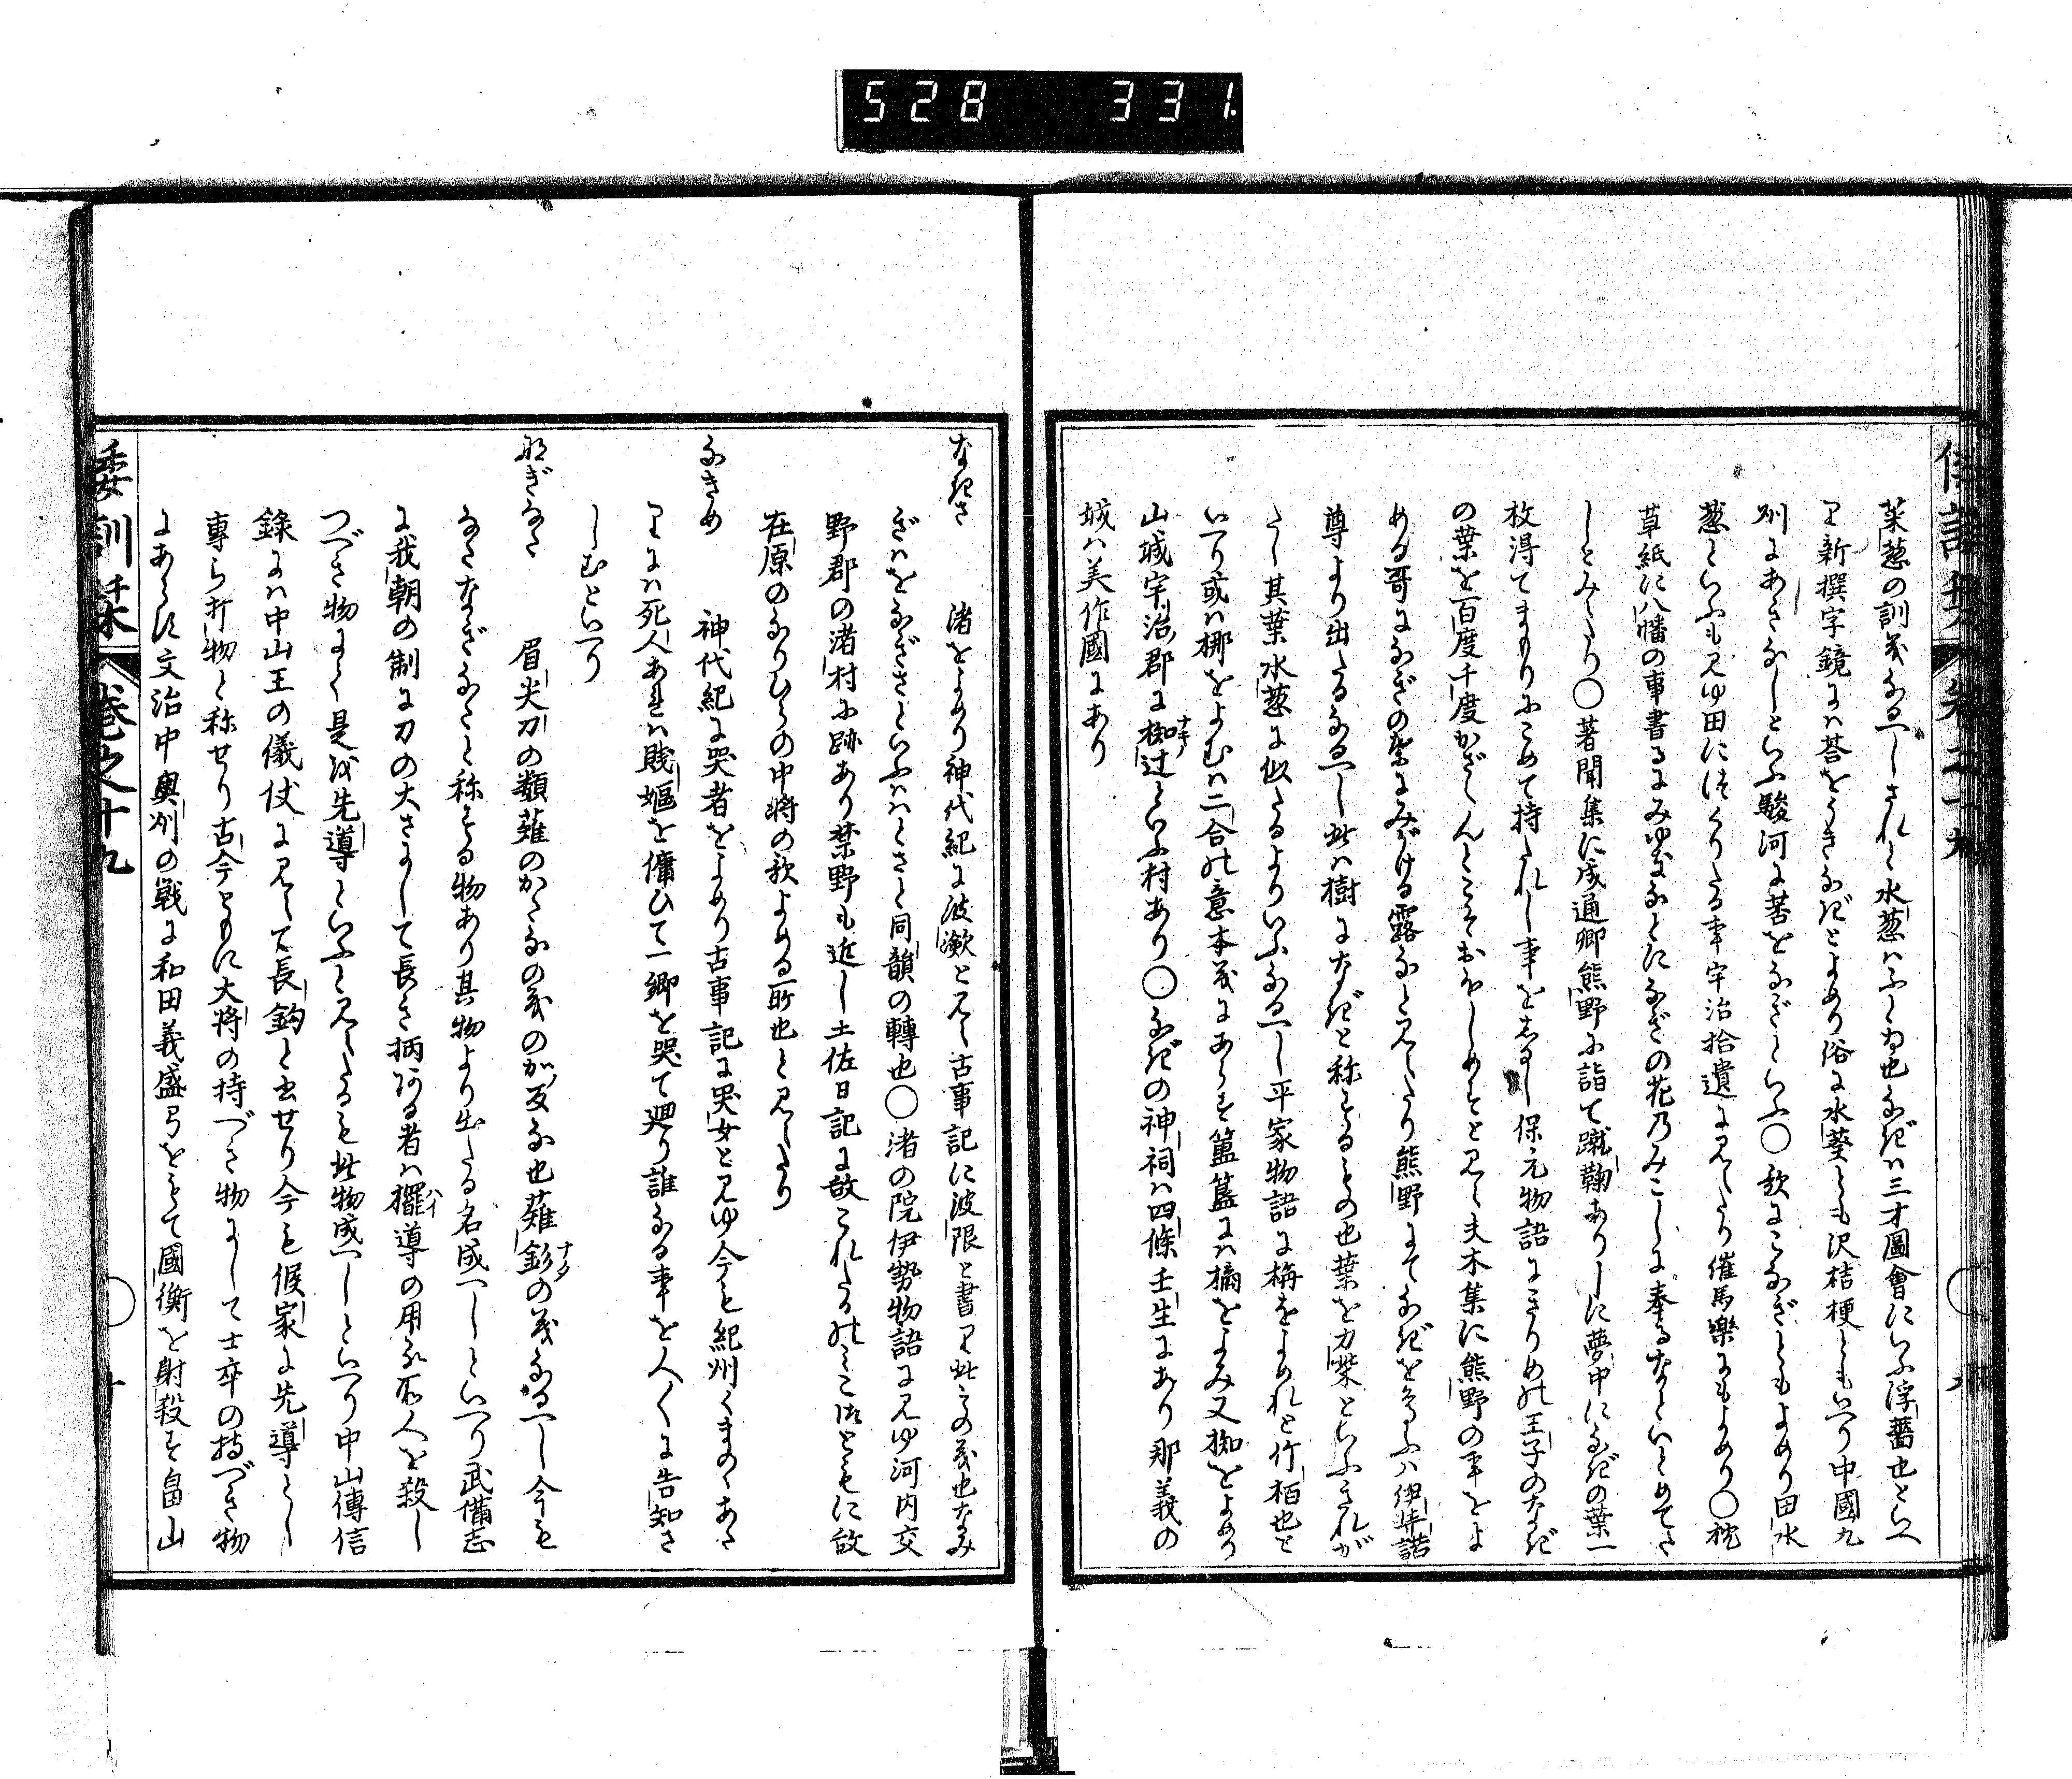 528 331.
菜葱の訓義なるべしされと水葱はふとゐ也なぎは三才圖會にいふ浮薔也といへ
り新撰字鏡には苔をうきなぎとよめり俗に水葵とも沢桔梗ともいへり中國九
州にあさなしといふ駿河に苦をなぎといふ〇歌にこなぎともよめり田水
葱といふも見ゆ田につくりたる事宇治拾遺に見えたり催馬樂にもよめり〇枕
草紙に八幡の事書るにみゆきなとになぎの花のみこしに奉るなといとめてた
しとみえたり〇著聞集に成通卿熊野に詣て蹴鞠ありしに夢中になぎの葉一
枚得てまもりにこめて持たれし事をしるし保元物語にきりめの王子のなぎ
の葉を百度千度かざゝんとこそおほしめせと見え夫木集に熊野の事をよ
める哥になぎの葉にみがける露なと見えたり熊野にてなぎを貴ふは伊弉諾
尊より出たるなるべし此は樹になぎと称するもの也葉を力柴といふされが
たし其葉水葱に似たるよりいふなるべし平家物語に梅をよめれと竹柏也と
いへり或は梛をよむは二合の意本義にあらす簠簋には樆をよみ又椥をよめり
山城宇治郡に椥辻といふ村あり〇なぎの神祠は四條壬生にあり那義の
城は美作國にあり
なぎさ 渚をよめり神代紀に波瀲と見え古事記に波限と書り此きの義也なみ
ぎはをなぎさといふはとさと同韻の轉也〇渚の院伊勢物語に見ゆ河内交
野郡の渚村に跡あり禁野も近し土佐日記に故これたかのみこ御ともに故
在原のなりひらの中将の歌よめる所也と見えたり
なきめ 神代紀に哭者をよめり古事記に哭女と見ゆ今も紀州くまのゝあた
りには死人あれは賎嫗を傭ひて一郷を哭て廻り誰なる事を人々に告知さ
しむといへり
なぎなた 眉尖刀の類薙のかたなの義のか反な也薙釤の義なるべし今も
なたなぎなたと称する物あり其物より出たる名成べしといへり武備志
に我朝の制に刀の大さにして長き柄ある者は擺導の用ふ所人を殺し
つべき物にて是を先導といふと見えたるも此物成べしといへり中山傳信
録には中山王の儀仗に見えて長鈎と出せり今も侯家に先導とし
專ら打物と称せり古今ともに大将の持べき物にして士卒の持べき物
にあらず文治中奥州の戰に和田義盛弓をもて國衡を射殺す畠山
倭訓栞 巻之十九